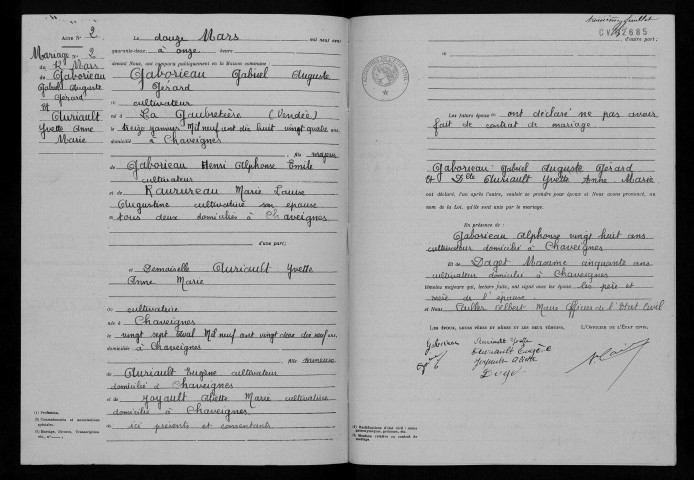 Acte N° 2
Mariage N° 2
du 12 Mars
de Gaborieau
Gabriel Auguste
Gérard
et
Auriault
Yvette Anne
Marie
Le douze Mars mil neuf cent
quarante-deux, à onze heures
devant Nous, ont comparu publiquement en la Maison commune :
Gaborieau Gabriel Auguste
Gérard
cultivateur
né à La Gaubretière (Vendée)
le treize janvier Mil neuf cent dix huit vingt quatre ans,
domicilié à Chaveignes
fils majeur
de Gaborieau Henri Alphonse Emile
cultivateur
et de Marie Louise
Augustine cultivatrice son épouse
tous deux domiciliés à Chaveignes
d'une part;
et Demoiselle Auriault Yvette
Anne Marie
cultivatrice
née à Chaveignes
le vingt sept Mil neuf cent vingt deux dix neuf ans,
domiciliée à Chaveignes
fille mineure
de Auriault Eugène cultivateur
domicilié à Chaveignes
et de Joyault Aliette Marie cultivatrice
domiciliée à Chaveignes
ici présents et consentants
(1) Profession.
(3) Mariage, Divorce, Transcriptions
etc., N°
feuillet
d'autre part;
Les futurs époux ont déclaré ne pas avoir
fait de contrat de mariage.
Gaborieau Gabriel Auguste Gérard
et Dlle Auriault Yvette Anne Marie
ont déclaré, l'un après l'autre, vouloir se prendre pour époux et Nous avons prononcé, au
nom de la Loi, qu'ils sont unis par le mariage.
En présence de
Gaborieau Alphonse vingt huit ans
cultivateur domicilié à Chaveignes
et de Daget Maxime cinquante ans
cultivateur domicilié à Chaveignes
témoins majeurs qui, lecture faite, ont signé avec les époux les père et
mère de l'épouse
et Nous Albert Maire Officier de l'Etat Civil
LES ÉPOUX, LEURS PÈRES ET MÈRES ET LES DEUX TÉMOINS,
L'OFFICIER DE L'ÉTAT CIVIL
Gaborieau
Auriault Yvette
Auriault Eugène
Joyault